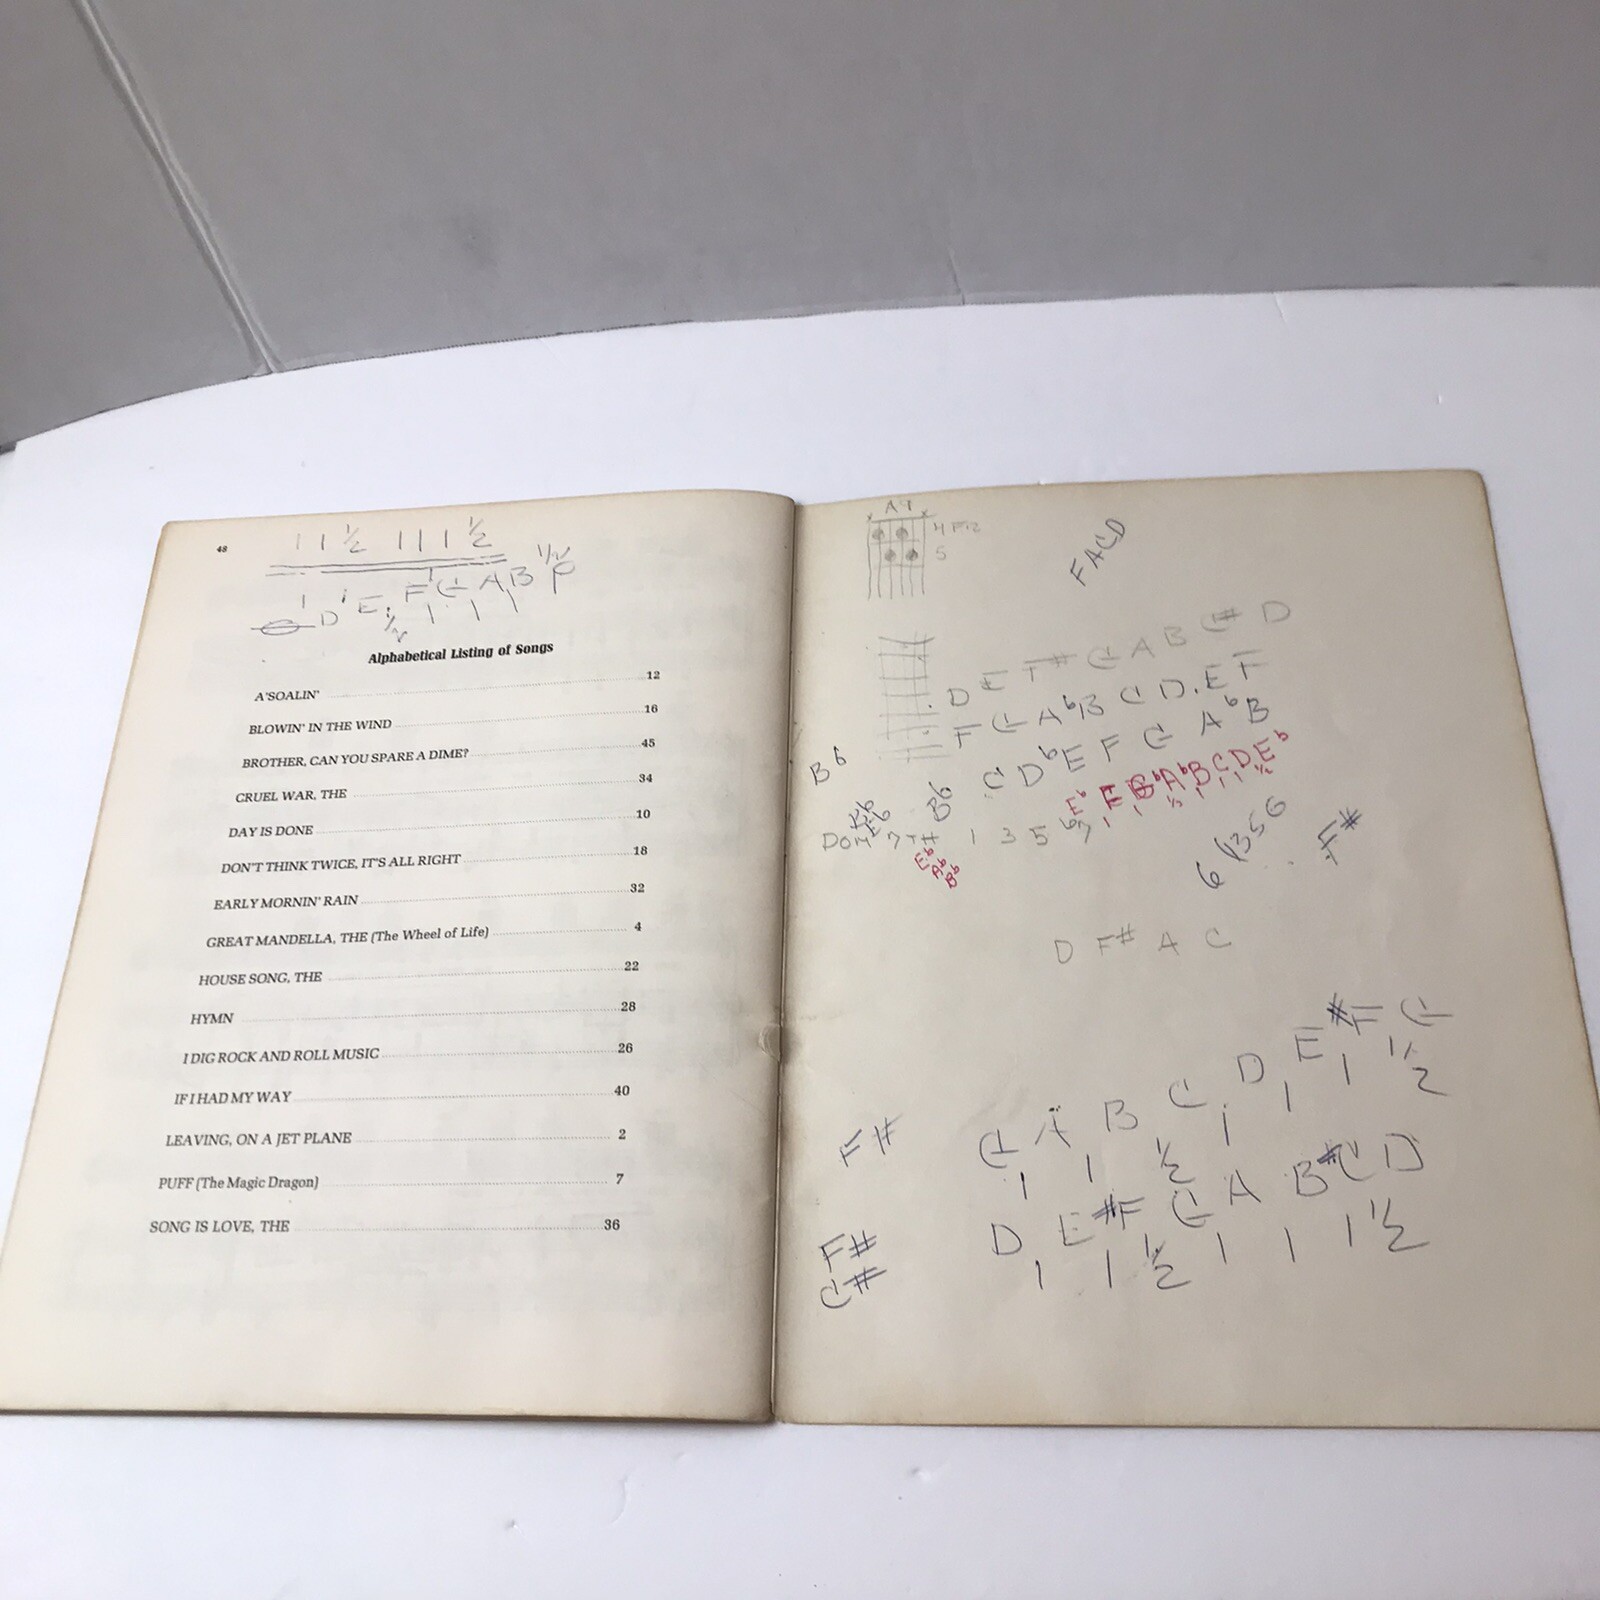 48
1 1 ½ 1 1 1 ½
1 1 1 ½
C D E F G A B
½ 1 1 1
Alphabetical Listing of Songs
A'SOALIN' 12
BLOWIN' IN THE WIND 16
BROTHER, CAN YOU SPARE A DIME? 45
CRUEL WAR, THE 34
DAY IS DONE 10
DON'T THINK TWICE, IT'S ALL RIGHT 18
EARLY MORNIN' RAIN 32
GREAT MANDELLA, THE (The Wheel of Life) 4
HOUSE SONG, THE 22
HYMN 28
I DIG ROCK AND ROLL MUSIC 26
IF I HAD MY WAY 40
LEAVING, ON A JET PLANE 2
PUFF (The Magic Dragon) 7
SONG IS LOVE, THE 36
x x
4
5
FACD
D E F# G A B C# D
F G A ♭B C D E F
B♭
B♭ C D ♭E F G A ♭B
E♭ ♭A ♭B C D E♭
1 3 5 ♭7
E♭
A♭
B♭
F#
D F# A C
F#
G A B C D E #F G
1 1 ½ 1 1 1 ½
F#
C#
D E #F G A B #C D
1 1 ½ 1 1 1 ½